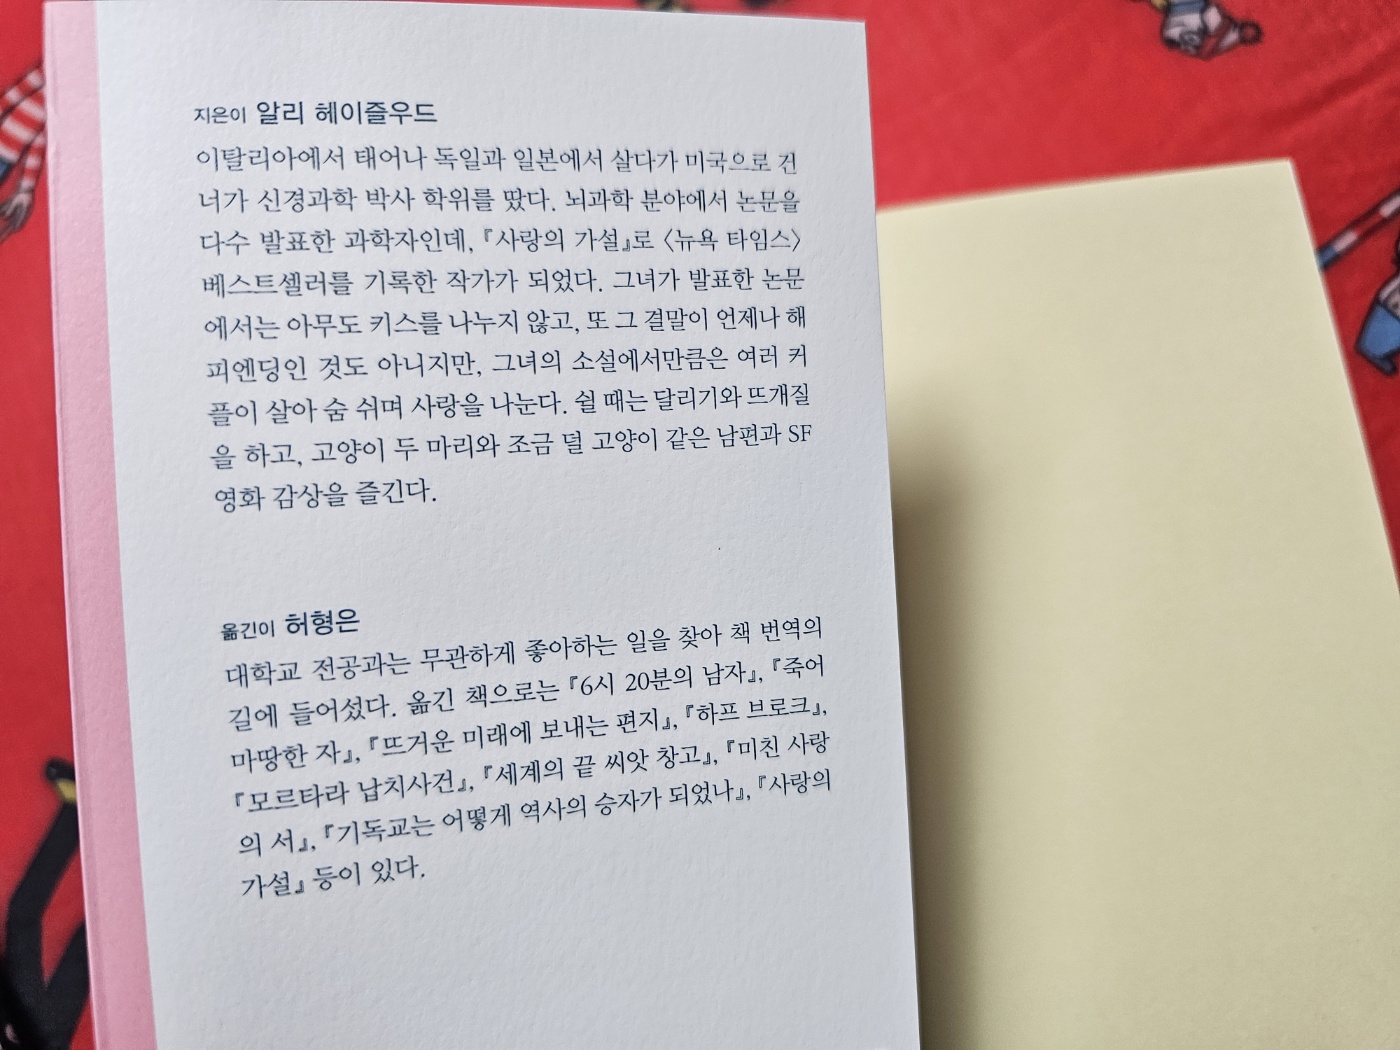 지은이 알리 헤이즐우드
이탈리아에서 태어나 독일과 일본에서 살다가 미국으로 건
너가 신경과학 박사 학위를 땄다. 뇌과학 분야에서 논문을
다수 발표한 과학자인데, 『사랑의 가설』로 〈뉴욕 타임스〉
베스트셀러를 기록한 작가가 되었다. 그녀가 발표한 논문
에서는 아무도 키스를 나누지 않고, 또 그 결말이 언제나 해
피엔딩인 것도 아니지만, 그녀의 소설에서만큼은 여러 커
플이 살아 숨 쉬며 사랑을 나눈다. 쉴 때는 달리기와 뜨개질
을 하고, 고양이 두 마리와 조금 덜 고양이 같은 남편과 SF
영화 감상을 즐긴다.
옮긴이 허형은
대학교 전공과는 무관하게 좋아하는 일을 찾아 책 번역의
길에 들어섰다. 옮긴 책으로는 『6시 20분의 남자』, 『죽어
마땅한 자』, 『뜨거운 미래에 보내는 편지』, 『하프 브로크』,
『모르타라 납치사건』, 『세계의 끝 씨앗 창고』, 『미친 사랑
의 서』, 『기독교는 어떻게 역사의 승자가 되었나』, 『사랑의
가설』 등이 있다.